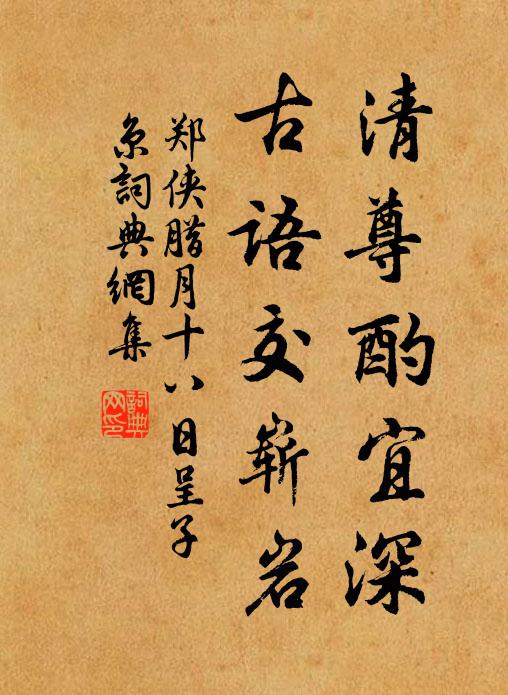 清尊酌宜深
古語交嶄岩
郑侠腊月十八日呈子
京詞典網集
詞典网印